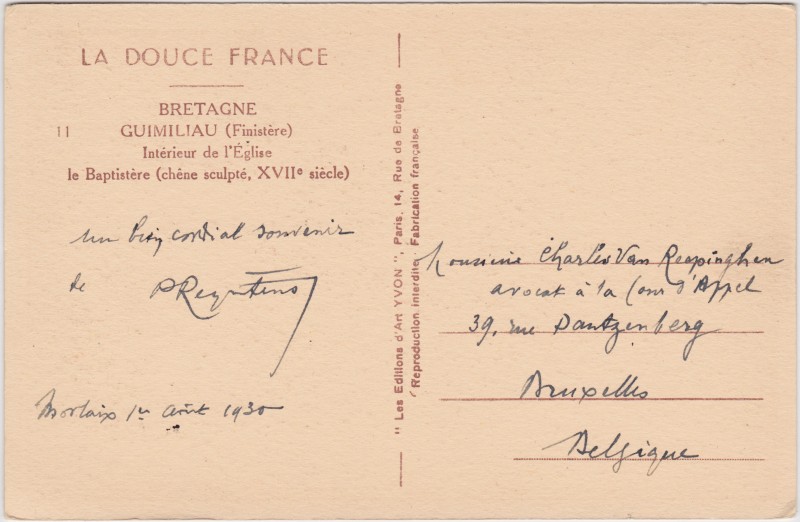 LA DOUCE FRANCE
BRETAGNE
11 GUIMILIAU (Finistère)
Intérieur de l'Église
le Baptistère (chêne sculpté, XVIIe siècle)
un bien cordial souvenir
de P Reyntens
Morlaix 1er août 1930
" Les Editions d'Art YVON ", Paris, 14, Rue de Bretagne
Reproduction interdite Fabrication française
Monsieur Charles Van Reepinghen
avocat à la Cour d'Appel
39, rue Dantzenberg
Bruxelles
Belgique